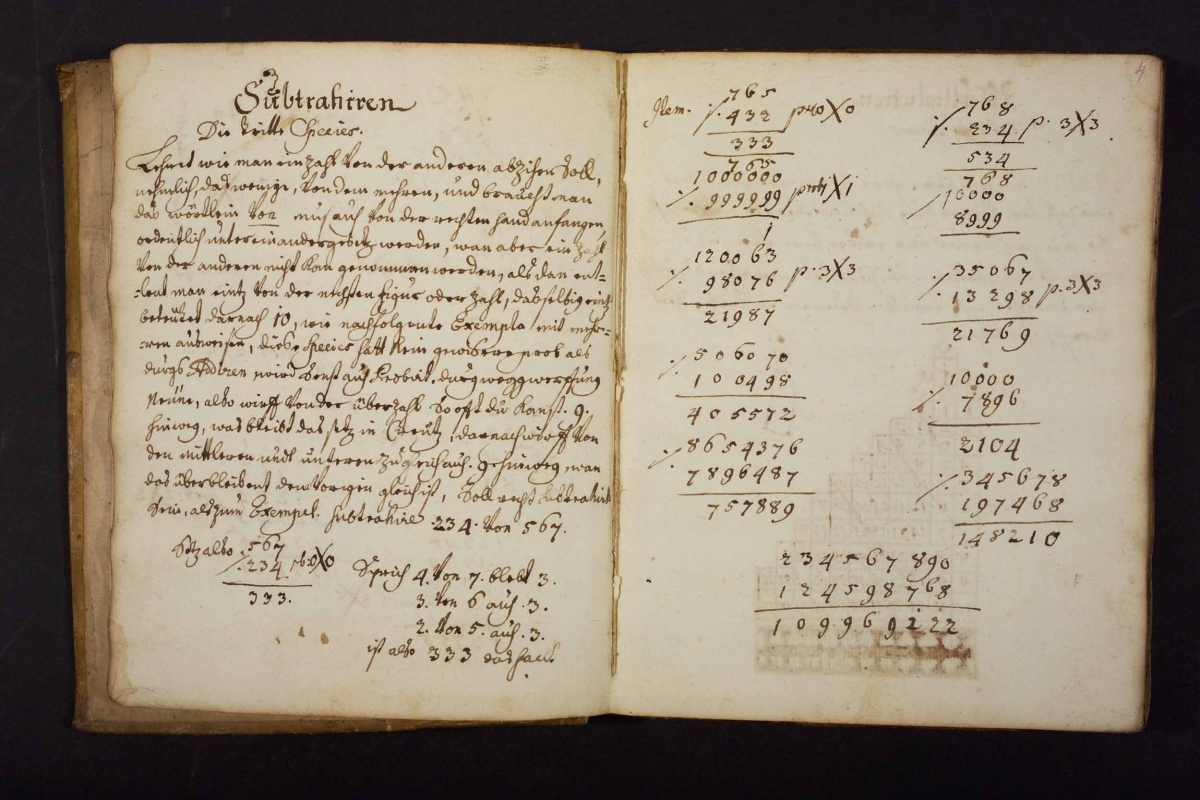 3
Subtrahiren
Die tritte Species.
Lehret wie man ein zahl Von der anderen abzihen Soll,
nehmlich, das wenige, Von dem mehren, und braucht man
das wörtlein Von mus auch Von der rechten hand anfangen
ordentlich unter einander gesetz werden, wan aber ein zahl
Von der anderen nicht kan genommen werden, als dan ent-
-lent man eintz Von der nechsten figur oder zahl, dasselbig eintz
beteütet darnach 10, wie nachfolgente Exempla mit mehr-
-ren ausweisen, diese Species hatt kein gewisere prob als
durgs Addiren, wird Sonst auch Probirt durg weggwerffung
Neüne, also wirff Von der überzahl So offt du kanst. 9.
hinweg, was bleibt das setz in Creütz, darnach wirff Von
den mittleren und unteren zugleich auch. 9 hinweg, wan
das überbleibent dem Vorgen gleich ist, Soll recht Subtrahirt
Sein, als zum Exempel. Subtrahire 234. Von 567.
Setz also 567
⁒. 234 prob X 0
333.
Sprich 4. Von 7. blebt 3.
3. Von 6 auch .3.
2. Von 5. auch .3.
ist also 333 das facit
4
Item. 765
⁒. 432 pro X 0
333
765
1000000
⁒. 999999 X 1
1
120063
⁒. 98076 p. 3X3
21987
⁒. 506070
100498
405572
⁒. 8654376
7896487
757889
768
⁒. 234 p. 3X3
534
768
10000
8999
35067
⁒. 13298 p. 3X3
21769
10000
⁒. 7896
2104
⁒. 345678
197468
148210
234567890
124598768
109969122